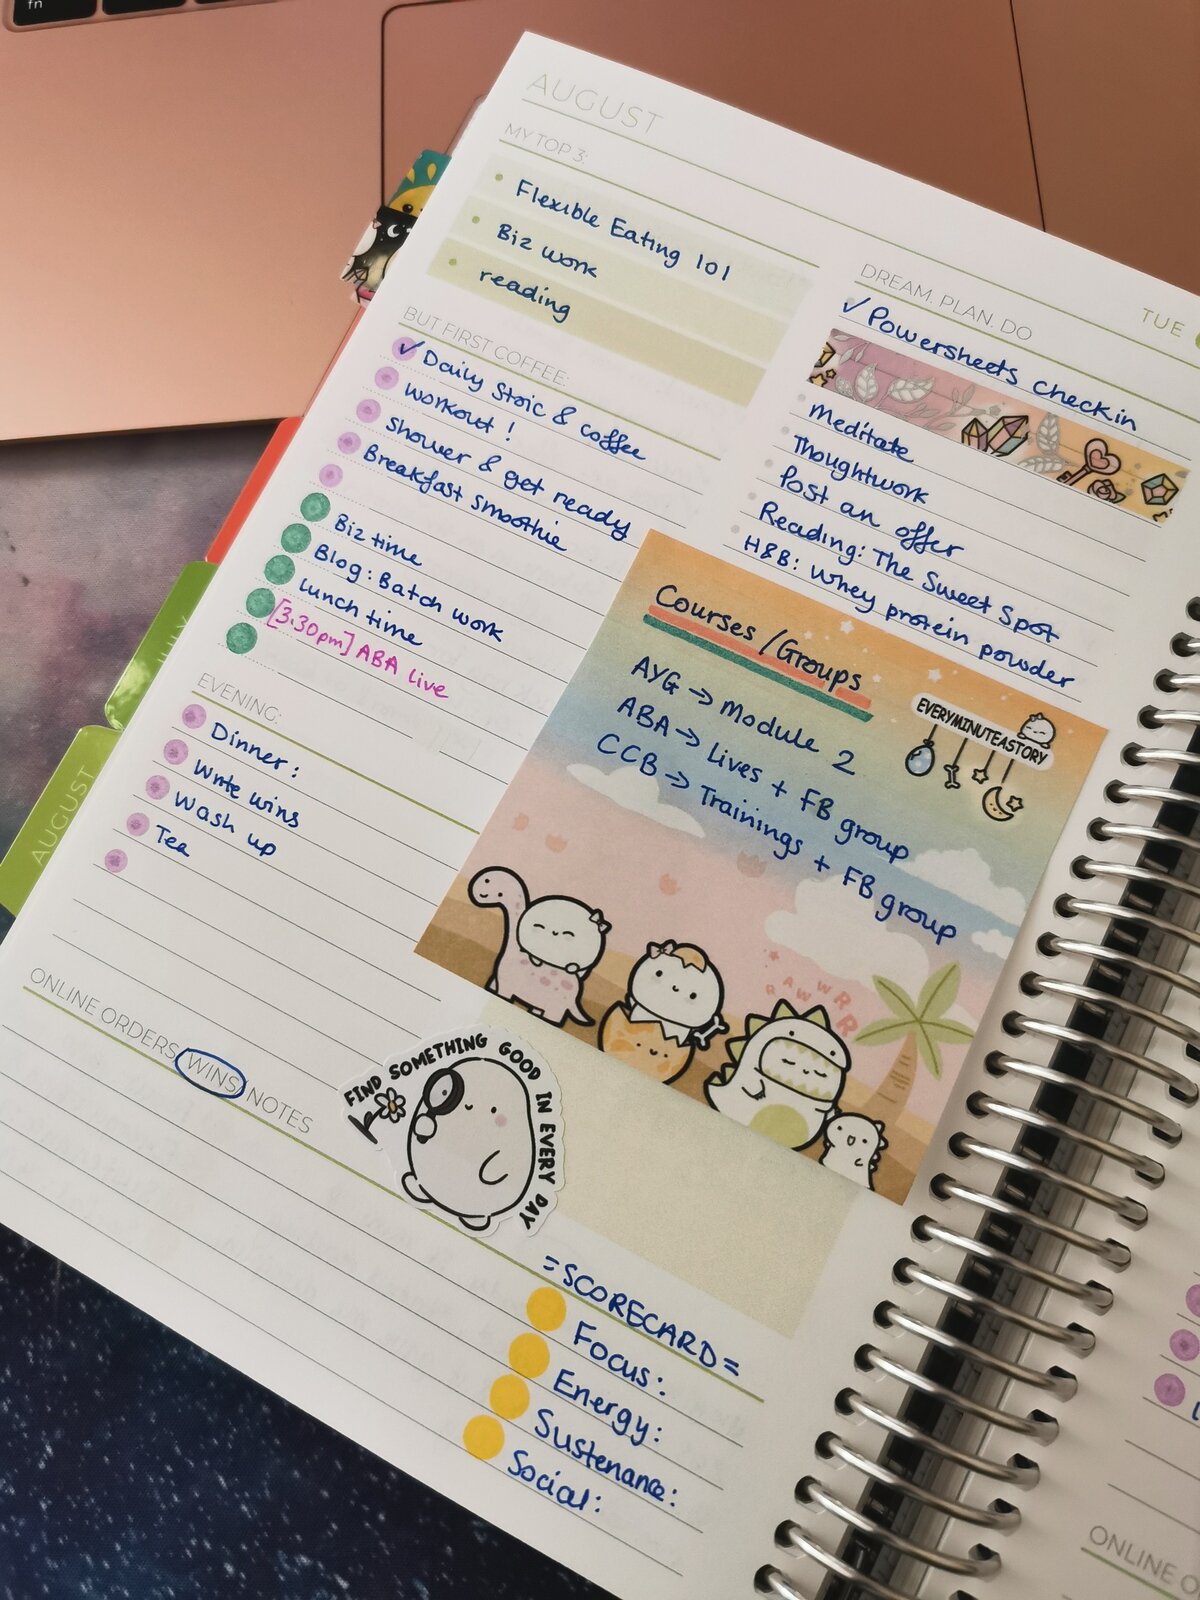 fn
AUGUST
MY TOP 3:
Flexible Eating 101
Biz work
reading
BUT FIRST COFFEE:
✓ Daily Stoic & coffee
workout !
shower & get ready
Breakfast smoothie
Biz time
Blog: Batch work
lunch time
[3.30pm] ABA live
EVENING:
Dinner:
Write wins
Wash up
Tea
ONLINE ORDERS/WINS/NOTES
DREAM. PLAN. DO
TUE
✓ Powersheets check in
Meditate
Thoughtwork
Post an offer
Reading: The Sweet Spot
H&B: Whey protein powder
Courses /Groups
AYG → Module 2
ABA → Lives + FB group
CCB → Trainings + FB group
EVERYMINUTEASTORY
RAWR
RAWR
FIND SOMETHING GOOD IN EVERY DAY
= SCORECARD =
Focus:
Energy:
Sustenance:
Social:
JULY
AUGUST
ONLINE O